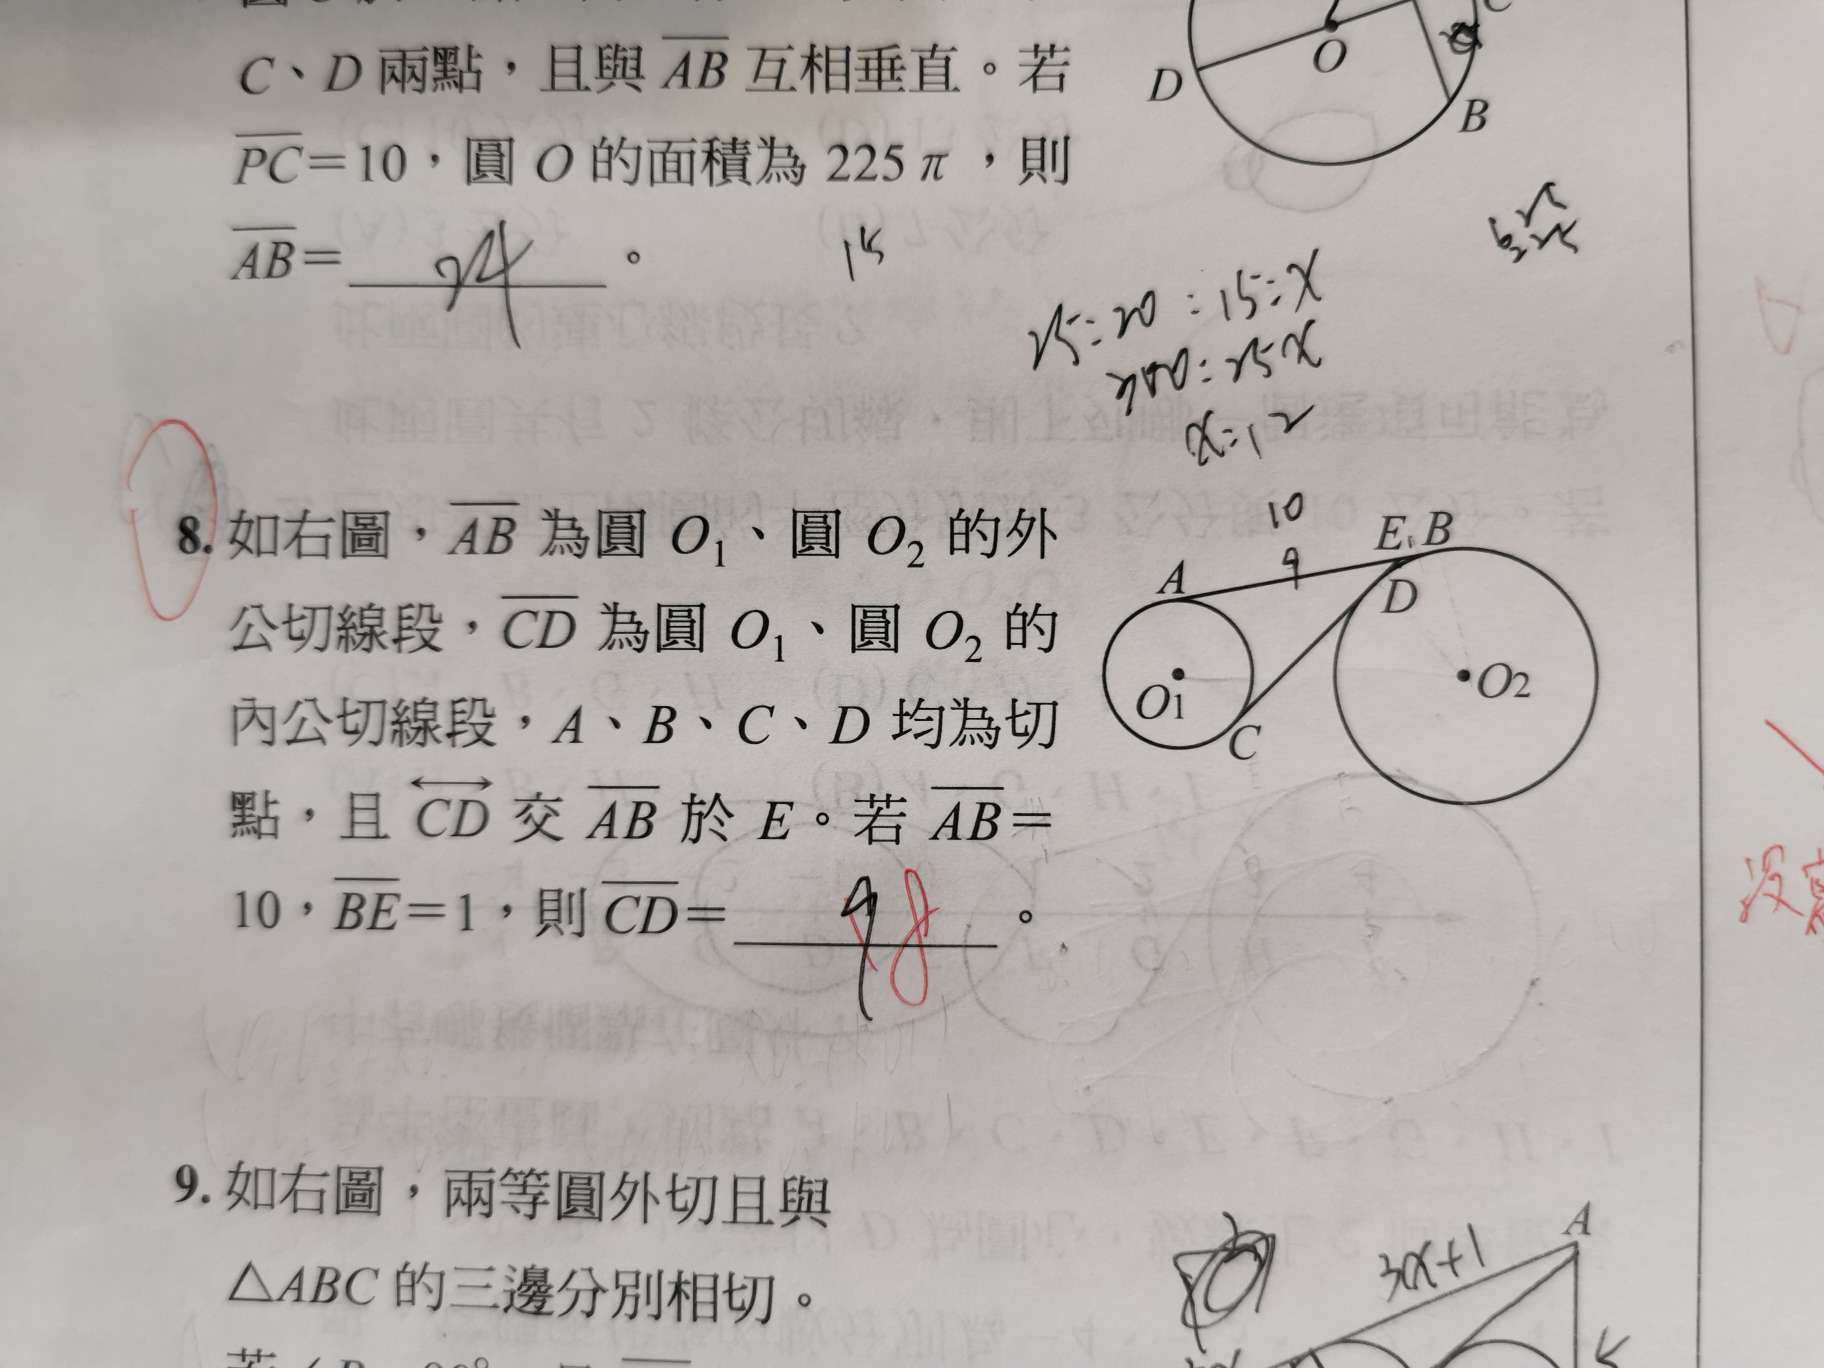 C、D 兩點，且與 AB 互相垂直。若
PC=10，圓 O 的面積為 225π，則
AB= 24 。
15
25:20=15:x
300=25x
x=12
D
O
B
8. 如右圖，AB 為圓 O₁、圓 O₂ 的外
公切線段，CD 為圓 O₁、圓 O₂ 的
內公切線段，A、B、C、D 均為切
點，且 CD 交 AB 於 E。若 AB=
10，BE=1，則 CD= 9 8 。
10
9
A
E
B
D
O1
O2
C
9. 如右圖，兩等圓外切且與
△ABC 的三邊分別相切。
A
3x+1